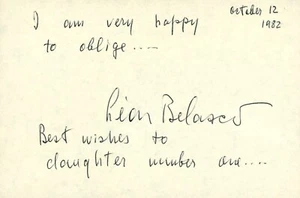 October 12
1982
I am very happy
to oblige ....
Leon Belasco
Best wishes to
daughter number one....